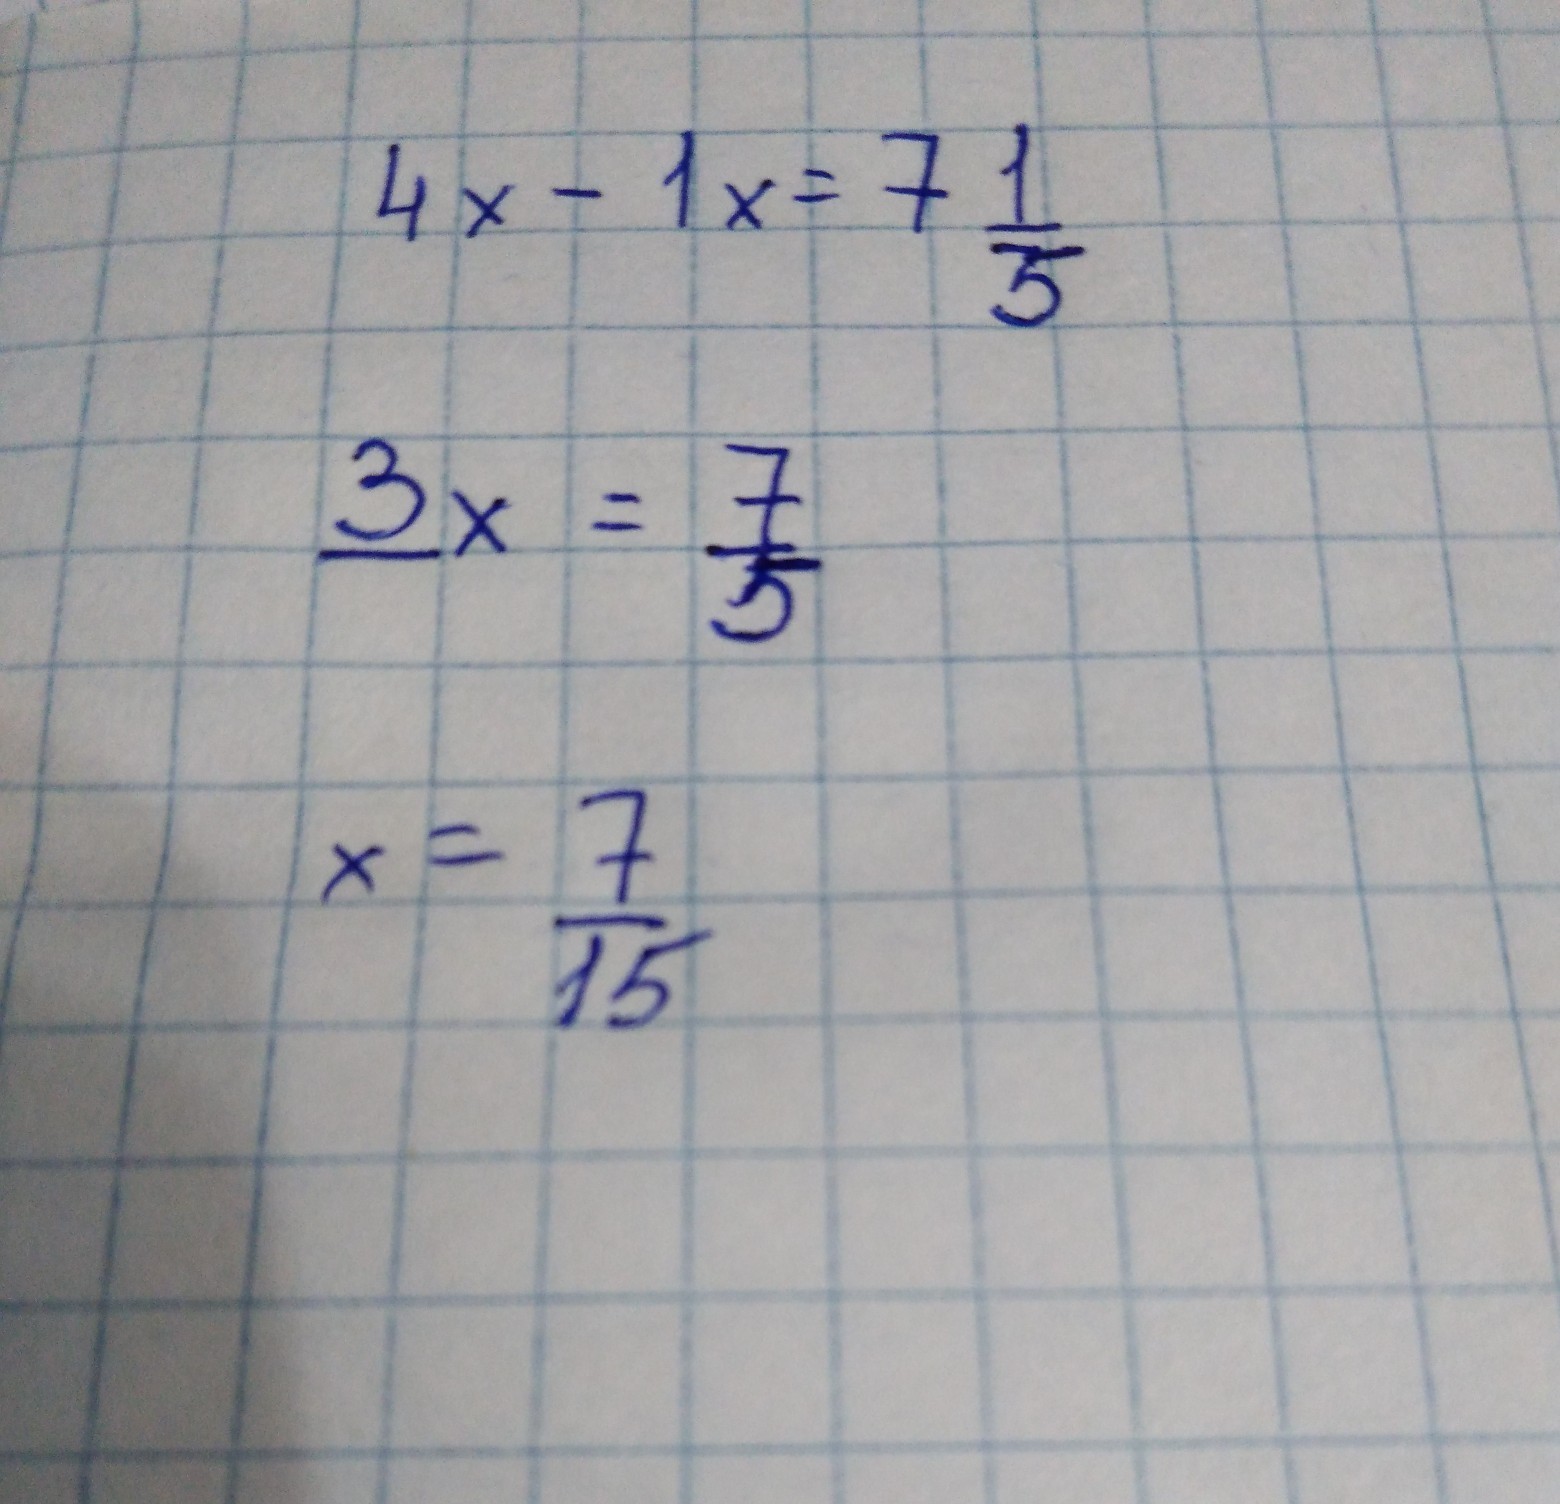 4x - 1x = 7 1/5
3x = 7/5
x = 7/15